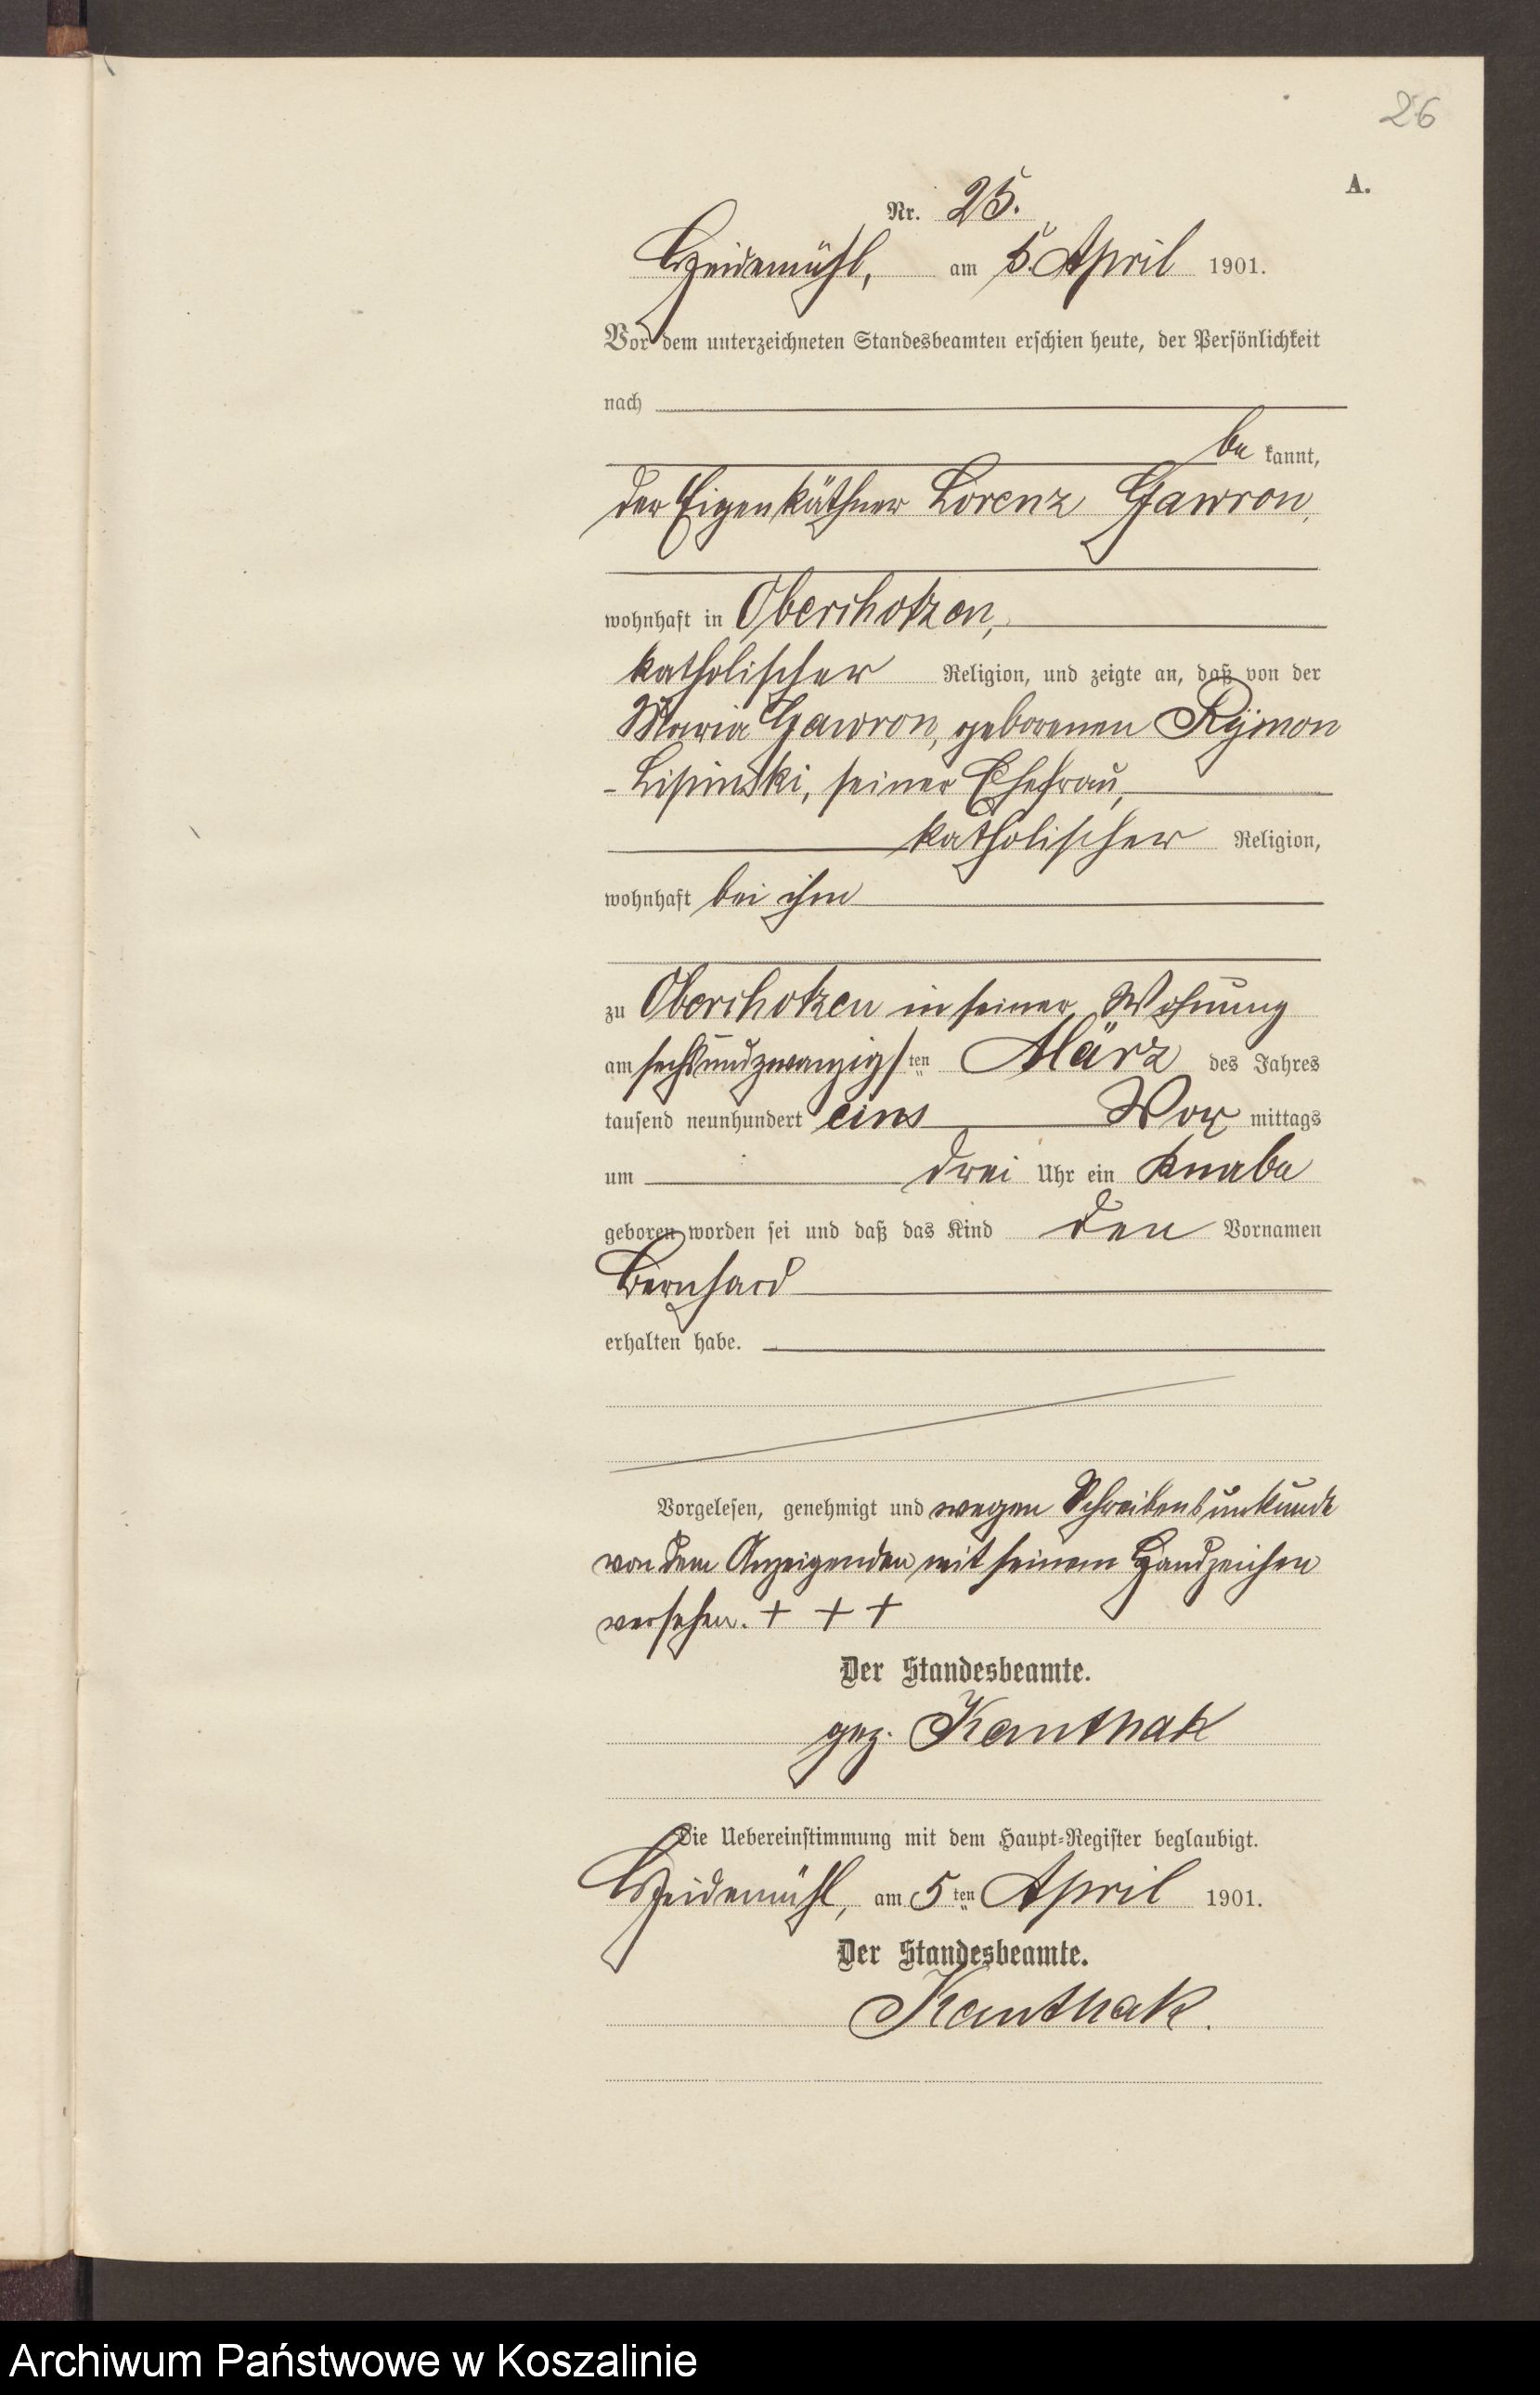 26
A.
Nr. 25.
Heidemühl, am 5. April 1901.
Vor dem unterzeichneten Standesbeamten erschien heute, der Persönlichkeit
nach
be kannt,
der Eigenkäthner Lorenz Gawron,
wohnhaft in Oberchotzen,
katholischer Religion, und zeigte an, daß von der
Maria Gawron, geborenen Rymon
-Lipinski, seiner Ehefrau,
katholischer Religion,
wohnhaft bei ihm
zu Oberchotzen in seiner Wohnung
am sechsundzwanzigsten März des Jahres
tausend neunhundert eins Vor mittags
um drei Uhr ein Knabe
geboren worden sei und daß das Kind den Vornamen
Bernhard
erhalten habe.
Vorgelesen, genehmigt und wegen Schreibensunkunde
von dem Anzeigenden mit seinem Handzeichen
versehen. + + +
Der Standesbeamte.
gez. Kanthak
Die Uebereinstimmung mit dem Haupt-Register beglaubigt.
Heidemühl, am 5 ten April 1901.
Der Standesbeamte.
Kanthak.
Archiwum Państwowe w Koszalinie